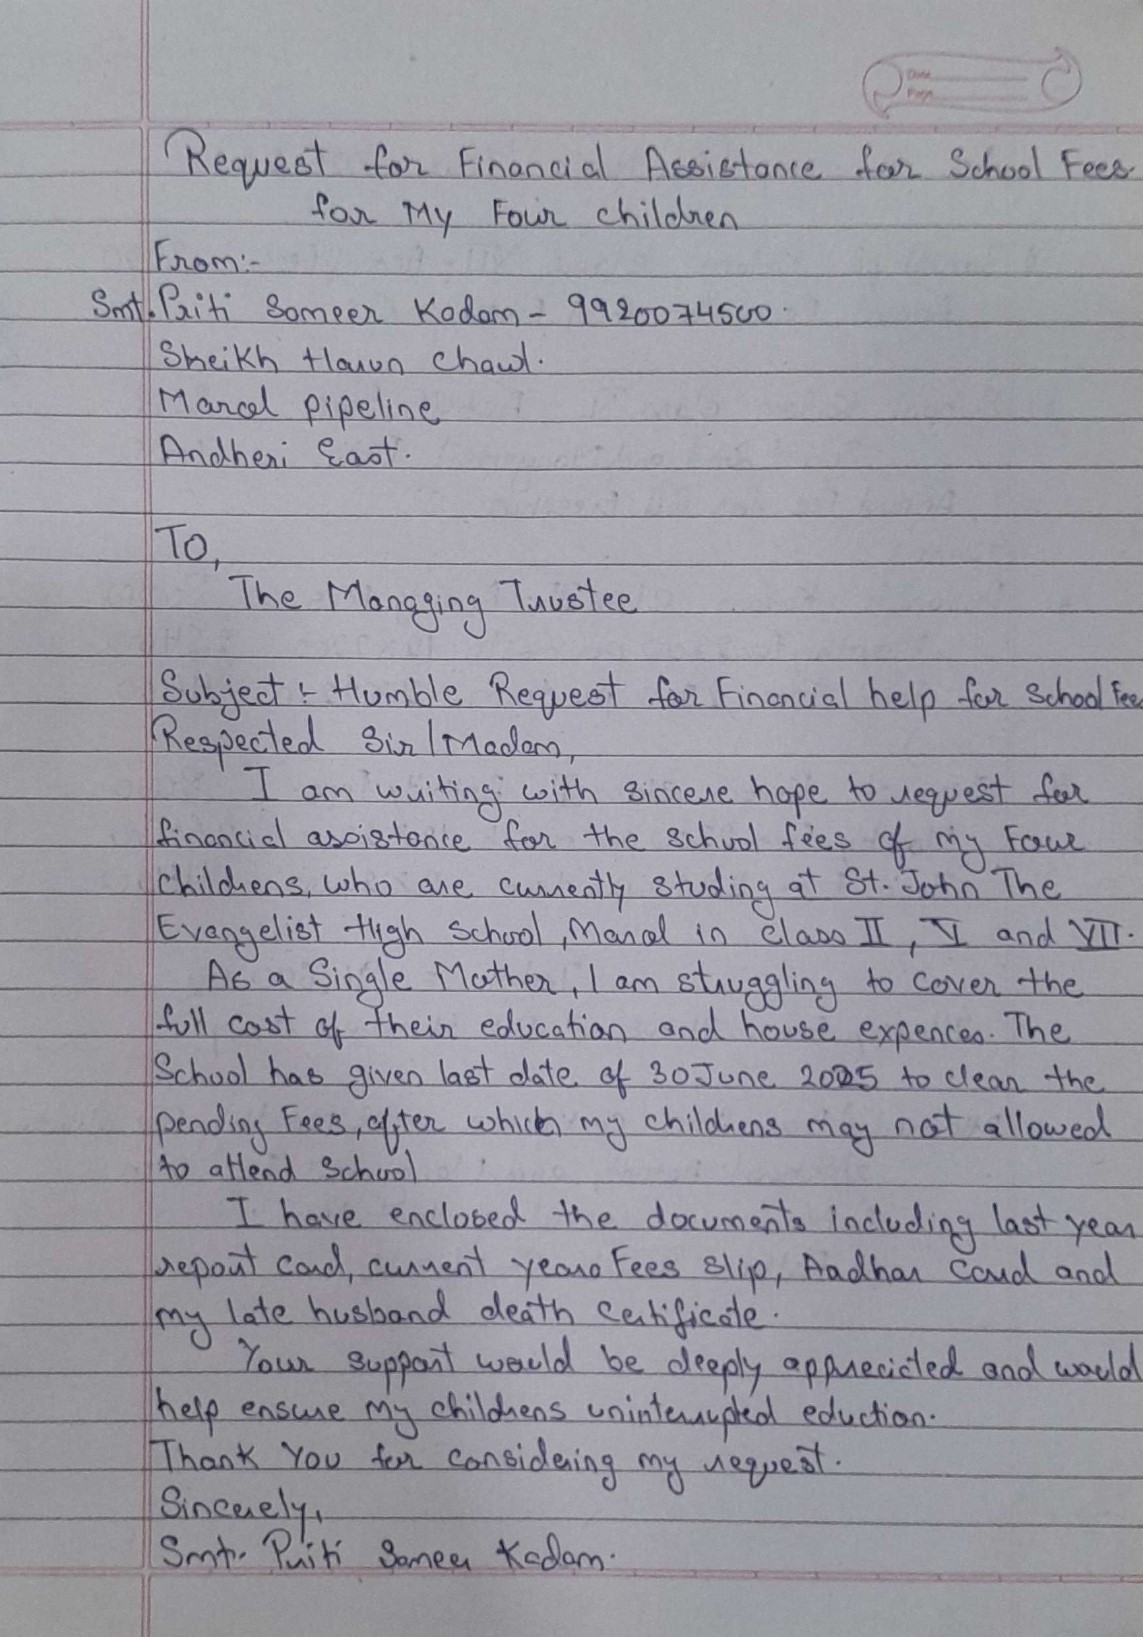 Date
Page
Request for Financial Assistance for School Fees
for My Four children
From:-
Smt. Priti Sameer Kadam - 9920074500.
Sheikh Harun Chawl.
Marol pipeline
Andheri East.
TO,
The Managing Trustee
Subject :- Humble Request for Financial help for School Fee
Respected Sir/Madam,
I am writing with sincere hope to request for
financial assistance for the school fees of my Four
childrens, who are currently studing at St. John The
Evangelist High School, Marol in class II, V and VII.
As a Single Mother, I am struggling to cover the
full cost of their education and house expences. The
School has given last date of 30 June 2025 to clear the
pending Fees, after which my childrens may not allowed
to attend School
I have enclosed the documents including last year
report card, current years Fees slip, Aadhar Card and
my late husband death certificate.
Your support would be deeply apprecicted and would
help ensure my childrens uninterrupted eduction.
Thank You for considering my request.
Sincerely,
Smt. Priti Sameer Kadam.